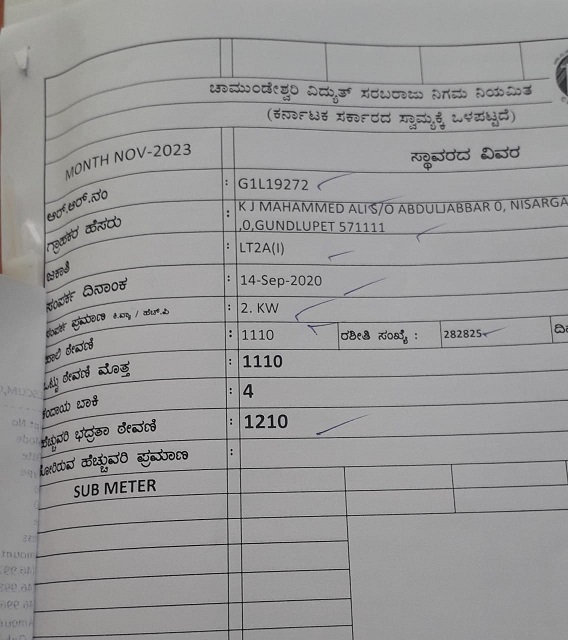 ಚಾಮುಂಡೇಶ್ವರಿ ವಿದ್ಯುತ್ ಸರಬರಾಜು ನಿಗಮ ನಿಯಮಿತ
(ಕರ್ನಾಟಕ ಸರ್ಕಾರದ ಸ್ವಾಮ್ಯಕ್ಕೆ ಒಳಪಟ್ಟದೆ)
MONTH NOV-2023 ಸ್ಥಾವರದ ವಿವರ
ಆರ್.ಆರ್.ನಂ : G1L19272
ಗ್ರಾಹಕರ ಹೆಸರು : K J MAHAMMED ALI S/O ABDULJABBAR 0, NISARGA
,0,GUNDLUPET 571111
ಜಕಾತಿ : LT2A(I)
ಸಂಪರ್ಕ ದಿನಾಂಕ : 14-Sep-2020
ಸಂಪರ್ಕ ಪ್ರಮಾಣ ಕಿ.ವ್ಯಾ / ಹೆಚ್.ಪಿ : 2. KW
ಠೇವಣಿ : 1110 ರಶೀತಿ ಸಂಖ್ಯೆ : 282825
ಒಟ್ಟು ಠೇವಣಿ ಮೊತ್ತ : 1110
ಕಂದಾಯ ಬಾಕಿ : 4
ಹೆಚ್ಚುವರಿ ಭದ್ರತಾ ಠೇವಣಿ : 1210
ಕೋರಿರುವ ಹೆಚ್ಚುವರಿ ಪ್ರಮಾಣ :
SUB METER